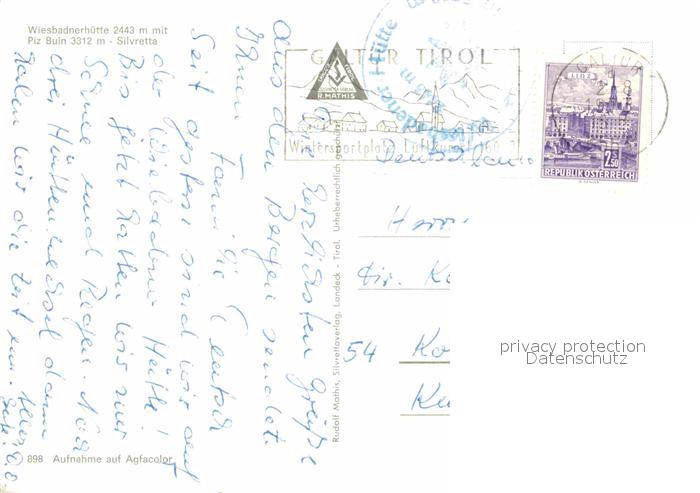 Wiesbadnerhütte 2443 m mit
Piz Buin 3312 m - Silvretta
GALTÜR TIROL
R. MATHIS
Wintersportplatz Luftkurort 1600 m
GALTÜR
LINZ
2.50
REPUBLIK ÖSTERREICH
Die herzlichsten Grüße
aus den Bergen sendet
Ihnen Familie
Seit gestern sind wir auf
der Wiesbadner Hütte!
Bis jetzt hatten wir nur
Schnee und Regen. Noch
drei Hütten dann
haben wir die Zeit um.
Alles Gute!
Rudolf Mathis, Silvrettaverlag, Landeck - Tirol. Urheberrechtlich geschützt
Deutschland
Herrn
Dir. K
54 Ko
898 Aufnahme auf Agfacolor
privacy protection
Datenschutz